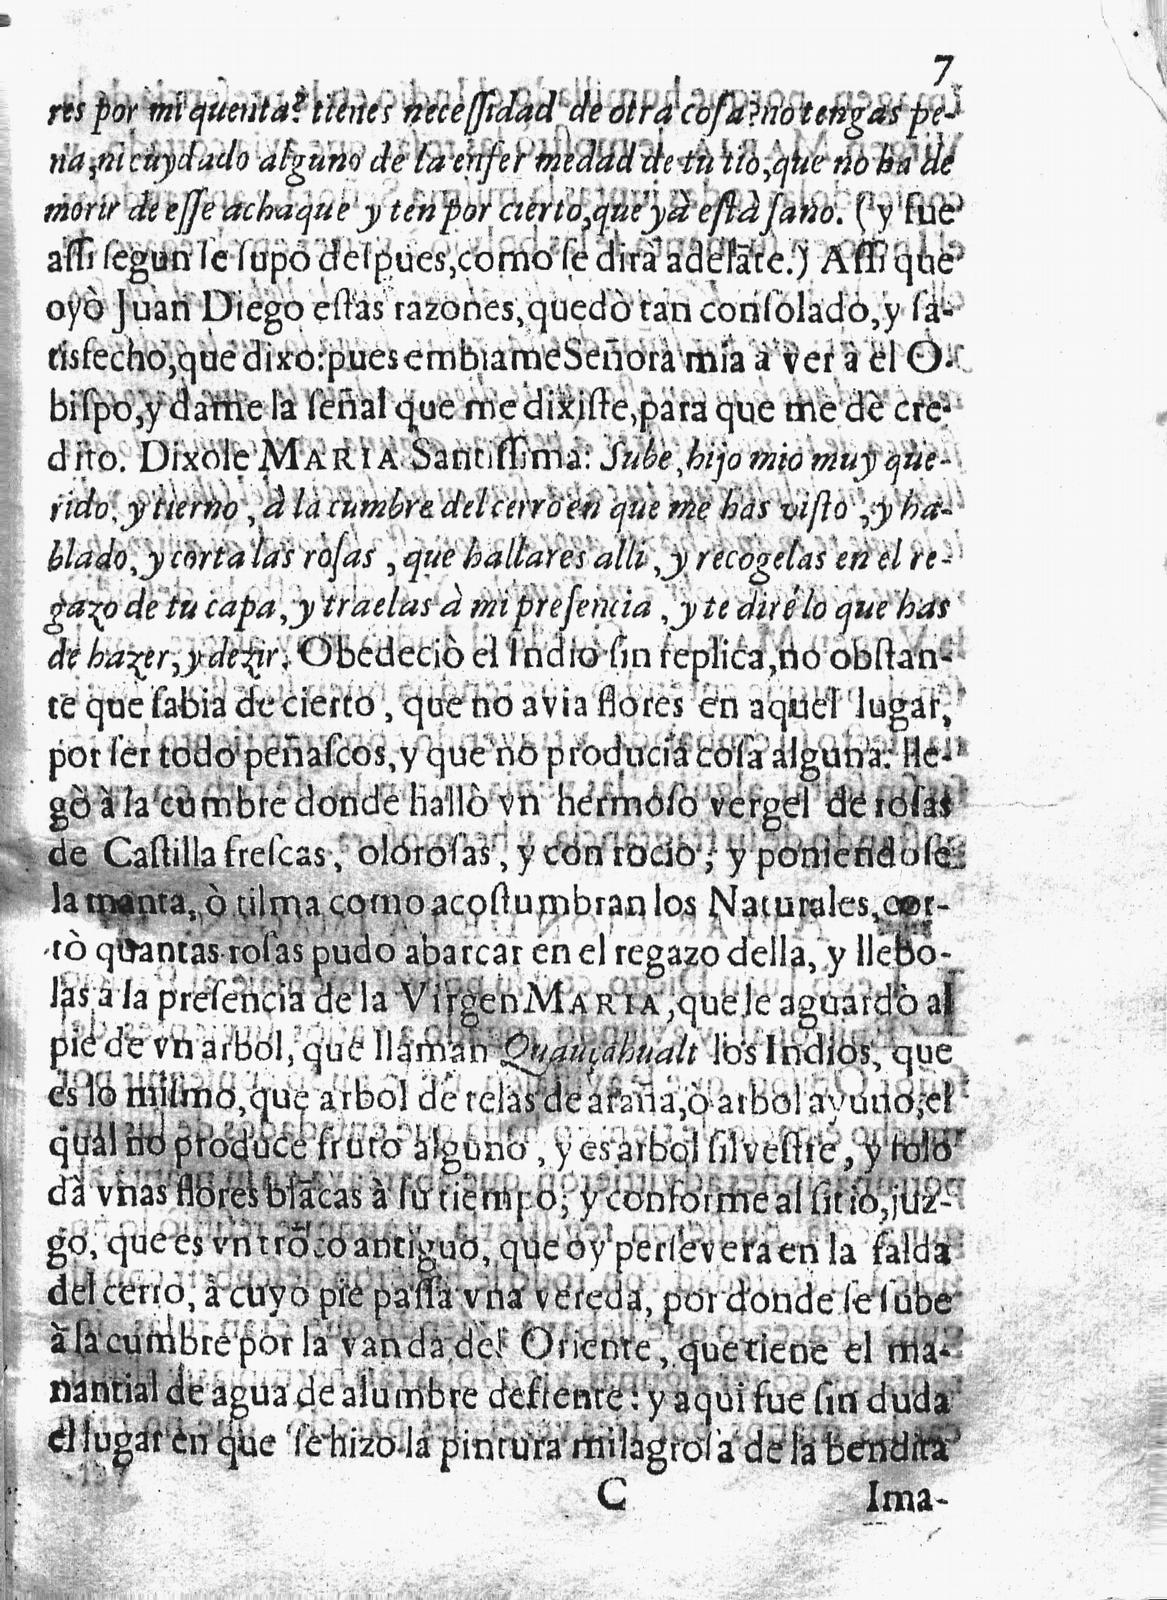 7
res por mi quenta? tienes necessidad de otra cosa? no tengas pe-
na, ni cuydado alguno de la enfermedad de tu tio, que no ha de
morir de esse achaque y ten por cierto, que yà està sano. (y fue
assi segun se supo despues, como se dirà adelãte.) Assi que
oyò Juan Diego estas razones, quedò tan consolado, y sa-
tisfecho, que dixo: pues embiame Señora mia à ver à el O-
bispo, y dame la señal que me dixiste, para que me dè cre-
dito. Dixole MARIA Santissima: Sube, hijo mio muy que-
rido, y tierno, à la cumbre del cerro en que me has visto, y ha-
blado, y corta las rosas, que hallares alli, y recogelas en el re-
gazo de tu capa, y traelas à mi presencia, y te diré lo que has
de hazer, y dezir. Obedeciò el Indio sin replica, no obstan-
te que sabia de cierto, que no avia flores en aquel lugar,
por ser todo peñascos, y que no producia cosa alguna: lle-
gò à la cumbre donde hallò vn hermoso vergel de rosas
de Castilla frescas, olorosas, y con rocio; y poniendose
la manta, ò tilma como acostumbran los Naturales, cor-
tò quantas rosas pudo abarcar en el regazo della, y llebo-
las à la presencia de la Virgen MARIA, que le aguardò al
pie de vn arbol, que llaman Quauçahualt los Indios, que
es lo mismo, que arbol de telas de araña, ò arbol ayuno, el
qual no produce fruto alguno, y es arbol silvestre, y solo
dà vnas flores blãcas à su tiempo; y conforme al sitio, juz-
go, que es vn trõco antiguo, que oy persevera en la falda
del cerro, à cuyo pie passa vna vereda, por donde se sube
à la cumbre por la vanda del Oriente, que tiene el ma-
nantial de agua de alumbre defrente: y aqui fue sin duda
el lugar en que se hizo la pintura milagrosa de la bendita
C Ima-